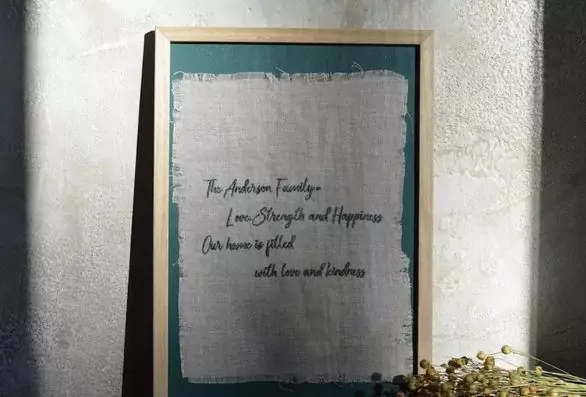 The Anderson Family.
Love. Strength and Happiness
Our home is filled
with love and kindness